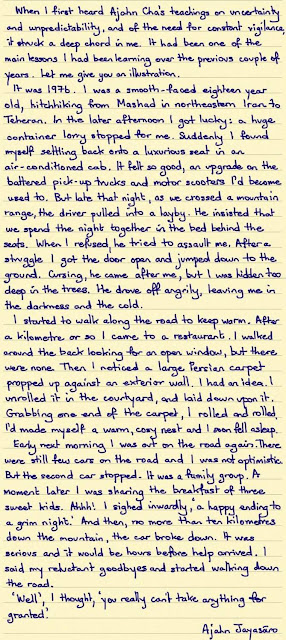 When I first heard Ajahn Cha's teachings on uncertainty
and unpredictability, and of the need for constant vigilance,
it struck a deep chord in me. It had been one of the
main lessons I had been learning over the previous couple of
years. Let me give you an illustration.
It was 1976. I was a smooth-faced eighteen year
old, hitchhiking from Mashad in northeastern Iran to
Teheran. In the later afternoon I got lucky: a huge
container lorry stopped for me. Suddenly I found
myself settling back onto a luxurious seat in an
air-conditioned cab. It felt so good, an upgrade on the
battered pick-up trucks and motor scooters I'd become
used to. But late that night, as we crossed a mountain
range, the driver pulled into a layby. He insisted that
we spend the night together in the bed behind the
seats. When I refused, he tried to assault me. After a
struggle I got the door open and jumped down to the
ground. Cursing, he came after me, but I was hidden too
deep in the trees. He drove off angrily, leaving me in
the darkness and the cold.
I started to walk along the road to keep warm. After
a kilometre or so I came to a restaurant. I walked
around the back looking for an open window, but there
were none. Then I noticed a large Persian carpet
propped up against an exterior wall. I had an idea. I
unrolled it in the courtyard, and laid down upon it.
Grabbing one end of the carpet, I rolled and rolled.
I'd made myself a warm, cosy nest and I soon fell asleep.
Early next morning I was out on the road again. There
were still few cars on the road and I was not optimistic.
But the second car stopped. It was a family group. A
moment later I was sharing the breakfast of three
sweet kids. Ahhh! I sighed inwardly, 'a happy ending to
a grim night.' And then, no more than ten kilometres
down the mountain, the car broke down. It was
serious and it would be hours before help arrived. I
said my reluctant goodbyes and started walking down
the road.
'Well', I thought, 'you really can't take anything for
granted.'
Ajahn Jayasāro